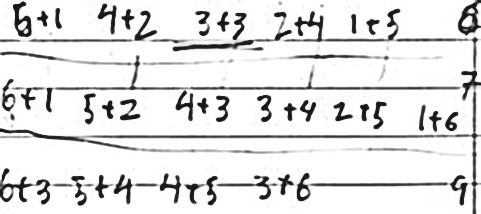 5+1 4+2 3+3 2+4 1+5 6
7
6+1 5+2 4+3 3+4 2+5 1+6
6+3 5+4 4+5 3+6 9